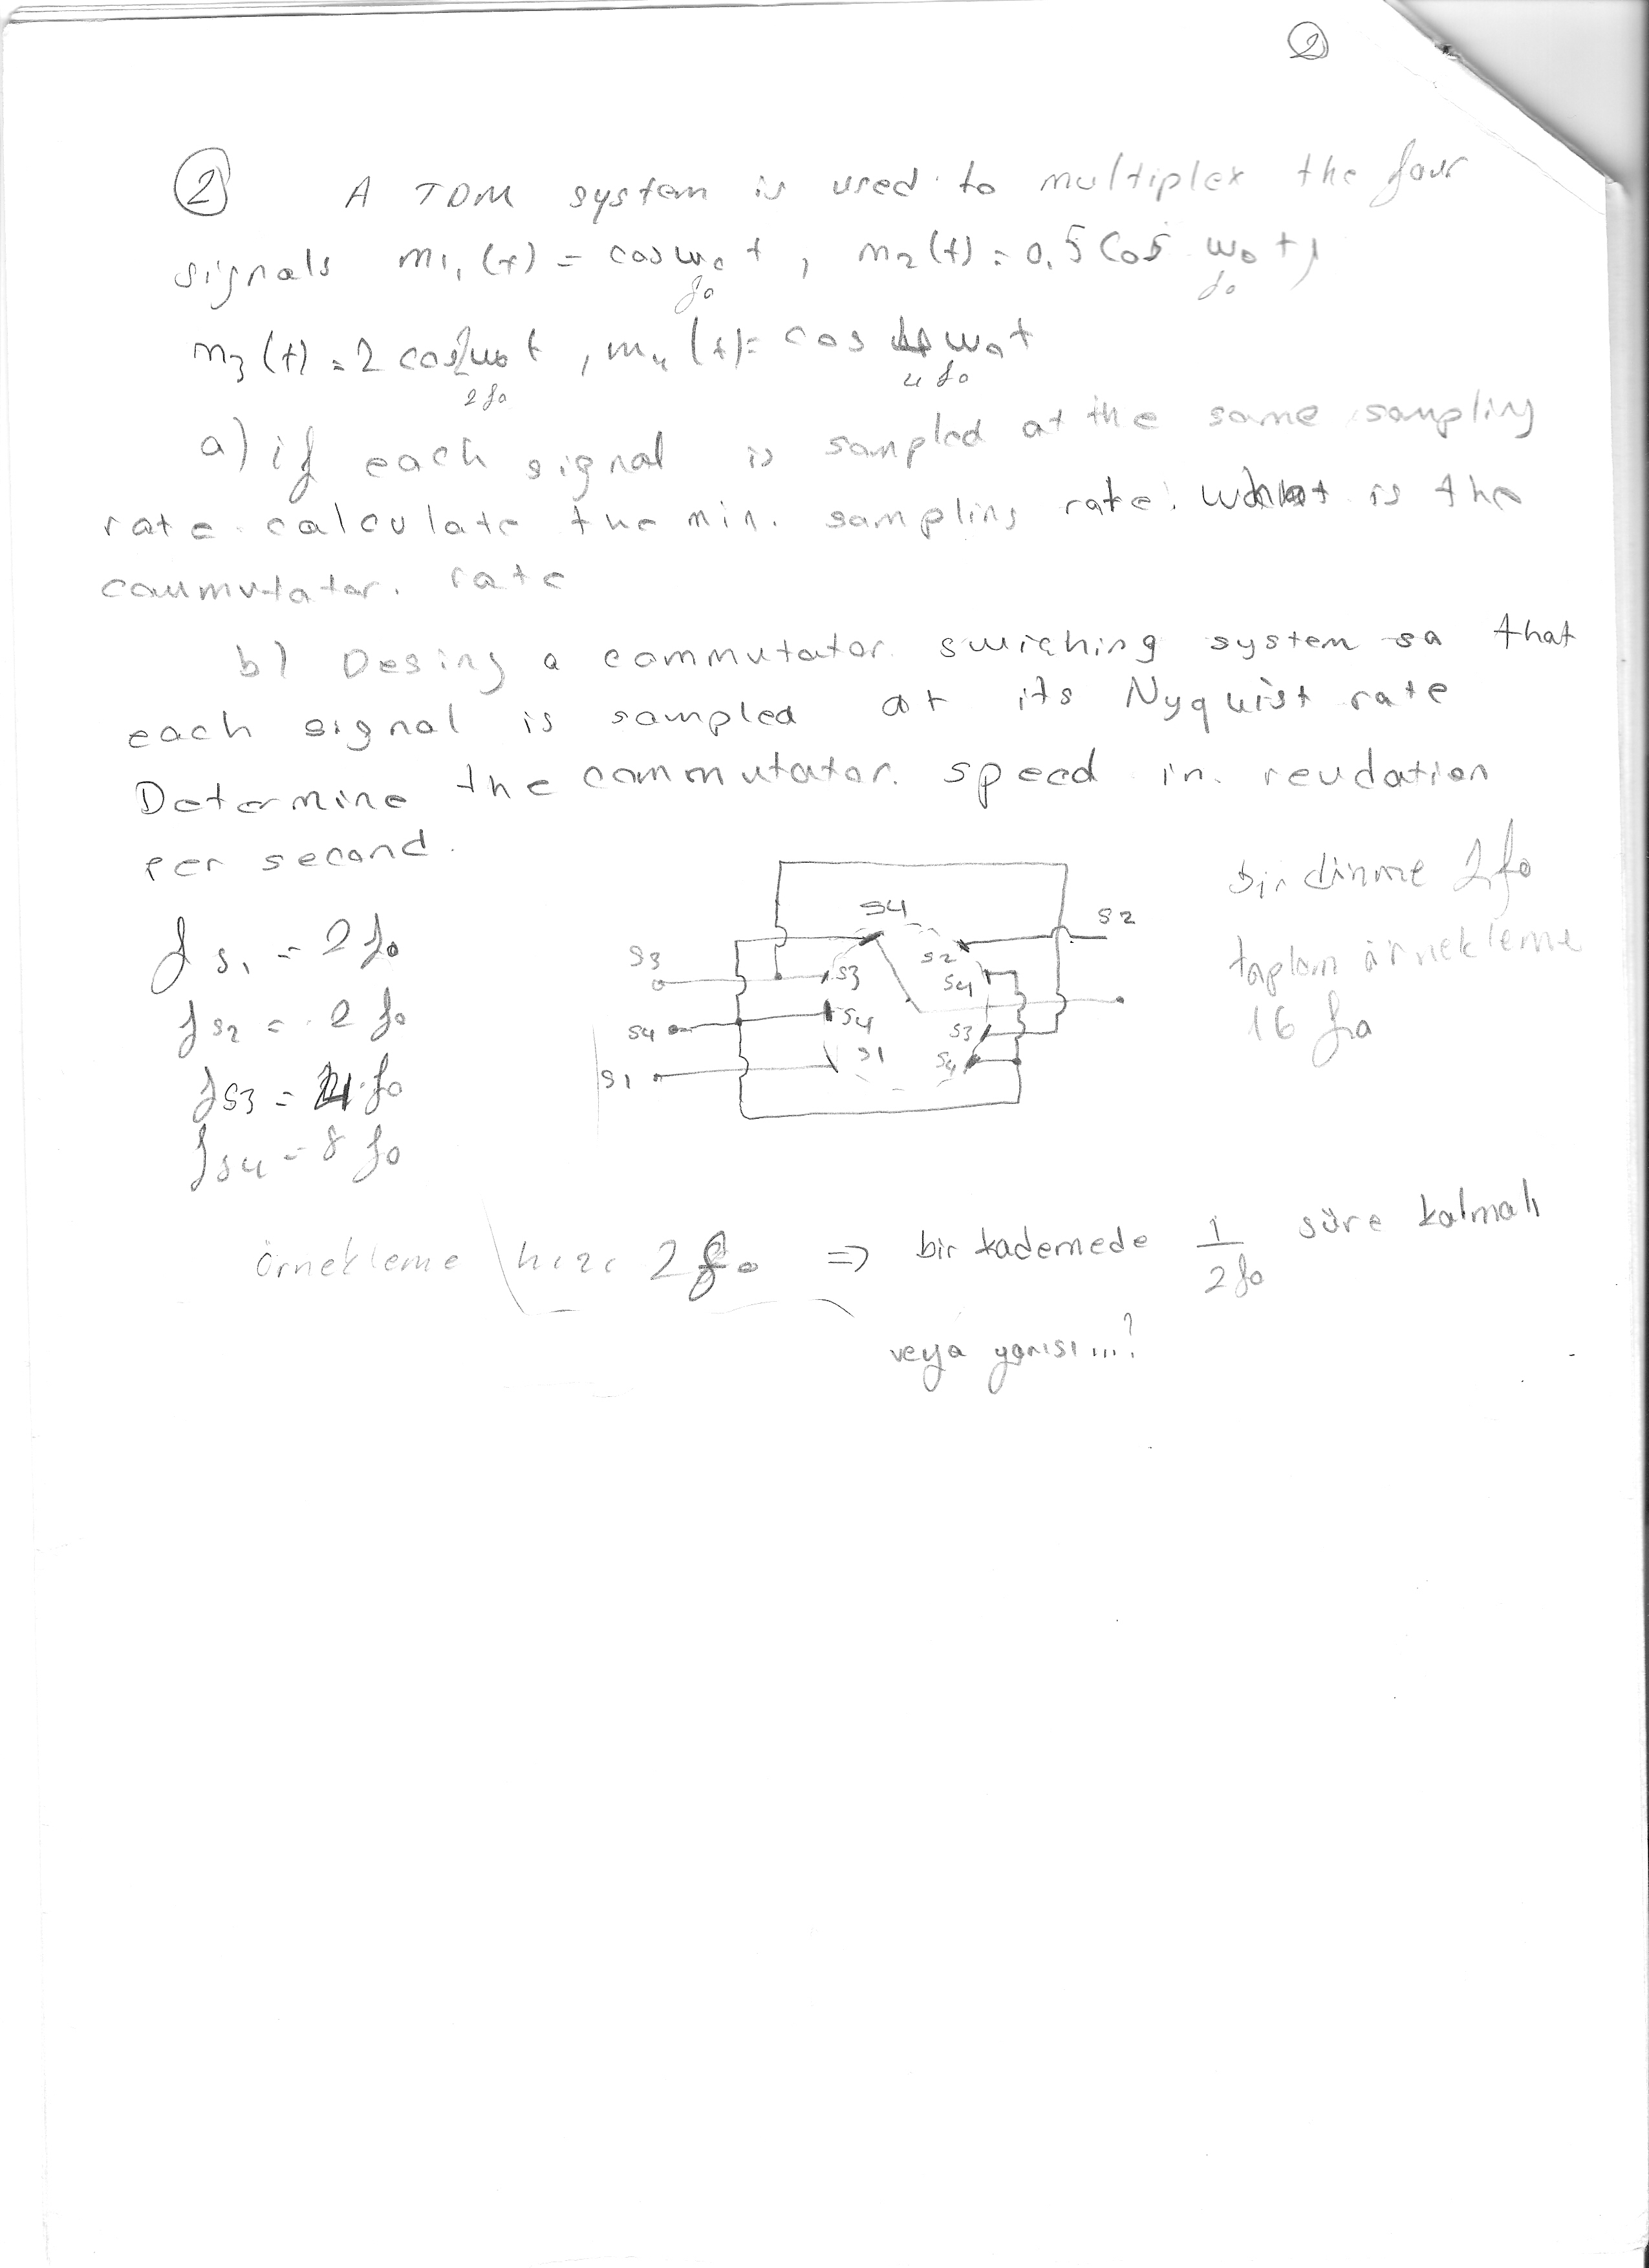 ②
② A TDM system is used to multiplex the four
signals m1, (t) = cos wo t , m2 (t) = 0,5 Cos wo t,
fo fo
m3 (t) = 2 cos 2wo t , m4 (t) = cos 4 wo t
2fo 4fo
a) if each signal is sampled at the same sampling
rate calculate the min. sampling rate. What is the
commutator. rate
b) Desing a commutator swiching system so that
each signal is sampled at its Nyquist rate
Determine the commutator. speed in. reudation
per second.
bir dinme 2fo
toplam örnekleme
16 fo
fs1 = 2 fo
fs2 = 2 fo
fs3 = 4 fo
fs4 = 8 fo
S4
S3 S2 S2
S3 S4
S4 S4 S3
S1 S1 S4
örnekleme hızı 2fo ⇒ bir kademede 1/2fo süre kalmalı
veya yarısı...?